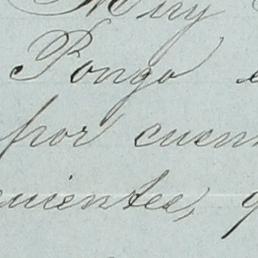 Muy
Pongo e
por cuen
quientes, q